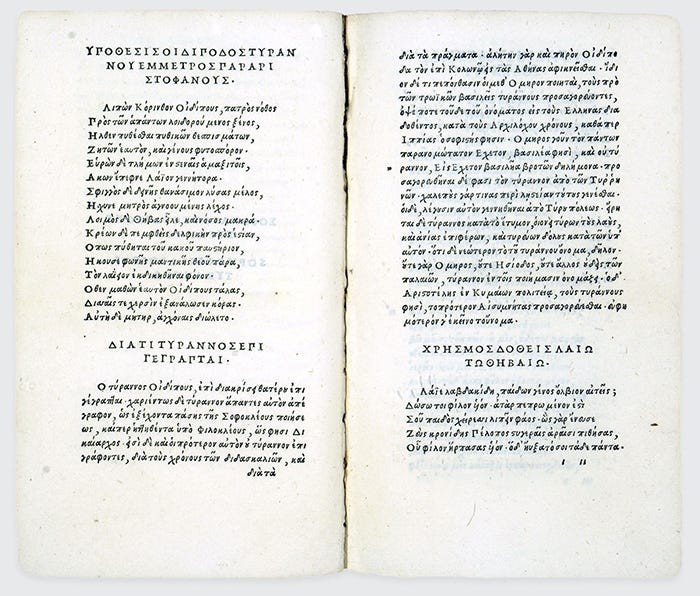 ΥΠΟΘΕΣΙΣ ΟΙΔΙΠΟΔΟΣ ΤΥΡΑΝ
ΝΟΥ ΕΜΜΕΤΡΟΣ ΠΑΡ ΑΡΙ
ΣΤΟΦΑΝΟΥΣ·
Λιπὼν Κόρινθον Οἰδίπους, πατρὸς νόθος
Πρὸς τῶν ἁπάντων λοιδορούμενος ξένος,
Ηλθε πυθέσθαι πυθικῶν θεσπισμάτων,
Ζητῶν ἑαυτὸν, καὶ γένους φυτοσπόρον·
Εὑρὼν δὲ τλήμων ἐν στεναῖς ἁμαξιτοῖς,
Ακων ἔπεφνε Λάϊον γεννήτορα·
Σφιγγὸς δὲ δεινῆς θανάσιμον λύσας μέλος,
Ηισχυνε μητρὸς ἀγνοουμένης λέχος·
Λοιμὸς δὲ Θήβας εἷλε, καὶ νόσος μακρά·
Κρέων δὲ πεμφθεὶς δελφικὴν πρὸς ἑστίαν,
Οπως πύθηται τοῦ κακοῦ παυστήριον,
Ηκουσε φωνῆς μαντικῆς θεοῦ πάρα,
Τὸν λαΐειον ἐκδικηθῆναι φόνον·
Οθεν μαθὼν ἑαυτὸν Οἰδίπους τάλας,
Δισσαῖς τε χερσὶν ἐξανάλωσεν κόρας·
Αὐτὴ δὲ μήτηρ, ἀγχόναις διώλετο·
ΔΙΑ ΤΙ ΤΥΡΑΝΝΟΣ ΕΠΙ
ΓΕΓΡΑΠΤΑΙ·
Ο τύραννος Οἰδίπους, ἐπὶ διακρίσει θατέρου ἐπι
γέγραπται· χαριέντως δὲ τύραννον ἅπαντες αὐτὸν ἐπέ
γραφον, ὡς ἐξέχοντα πάσης τῆς Σοφοκλέους ποιήσε
ως, καίπερ ἡττηθέντα ὑπὸ φιλοκλέους, ὥς φησι Δι
καίαρχος· εἰσὶ δὲ καὶ οἱ πρότερον αὐτὸν οὐ τύραννον ἐπι
γράφοντες, διὰ τοὺς χρόνους τῶν διδασκαλιῶν, καὶ
διὰ τὰ
διὰ τὰ πράγματα· ἀλήτην γὰρ καὶ πηρὸν Οἰδίπο
δα τὸν ἐπὶ Κολωνῷ εἰς τὰς Αθήνας ἀφικνεῖσθαι· ἴδι
ον δέ τι πεπόνθασιν οἱ μεθ' Ομηρον ποιηταὶ, τοὺς πρὸ
τῶν τρωϊκῶν βασιλεῖς τυράννους προσαγορεύοντες,
ὀψέ ποτε τοῦδε τοῦ ὀνόματος εἰς τοὺς Ελληνας δια
δοθέντος, κατὰ τοὺς Αρχιλόχου χρόνους, καθάπερ
Ιππίας ὁ σοφιστής φησιν· Ομηρος γοῦν τὸν πάντων
παρανομώτατον Εχετον, βασιλέα φησὶ, καὶ οὐ τύ
ραννον, Εἰς Εχετον βασιλῆα βροτῶν δηλήμονα· προ
σαγορευθῆναι δέ φασι τὸν τύραννον ἀπὸ τῶν Τυρρη
νῶν· χαλεποὺς γάρ τινας περὶ λῃστείαν τούτους γενέσθαι·
οἱ δὲ, λέγουσιν αὐτὸν γεννηθῆναι ἀπὸ Τύρου πόλεως· εἴρη
ται δὲ τύραννος κατὰ τὸ ἔτυμον, οἱονεὶ τύρων τοὺς λαοὺς,
καὶ ἀνίας ἐπιφέρων, καὶ τυρεύων δόλους κατὰ τῶν ὑπ'
αὐτόν· ὅτι δὲ νεώτερον τὸ τοῦ τυράννου ὄνομα, δῆλον·
οὔτε γὰρ Ομηρος, οὔτε Ησίοδος, οὔτε ἄλλος οὐδεὶς τῶν
παλαιῶν, τύραννον ἐν τοῖς ποιήμασιν ὀνομάζει· ὁ δ'
Αριστοτέλης ἐν Κυμαίων πολιτείᾳ, τοὺς τυράννους
φησὶ, τοπρότερον Αἰσυμνήτας προσαγορεύεσθαι· εὐφη
μότερον γὰρ ἐκεῖνο τοὔνομα·
ΧΡΗΣΜΟΣ ΔΟΘΕΙΣ ΛΑΙΩ
ΤΩ ΘΗΒΑΙΩ·
Λάϊε λαβδακίδη, παίδων γένος ὄλβιον αἰτεῖς;
Δώσω τοι φίλον υἱόν· ἀτὰρ πεπρωμένον ἐστὶ
Σοῦ παιδὸς χείρεσσι λιπεῖν φάος· ὡς γὰρ ἔνευσε
Ζεὺς κρονίδης Πέλοπος στυγεραῖς ἀραῖσι πιθήσας,
Οὗ φίλον ἥρπασας υἱόν· ὁ δ' ηὔξατό σοι τάδε πάντα·
ι ιι